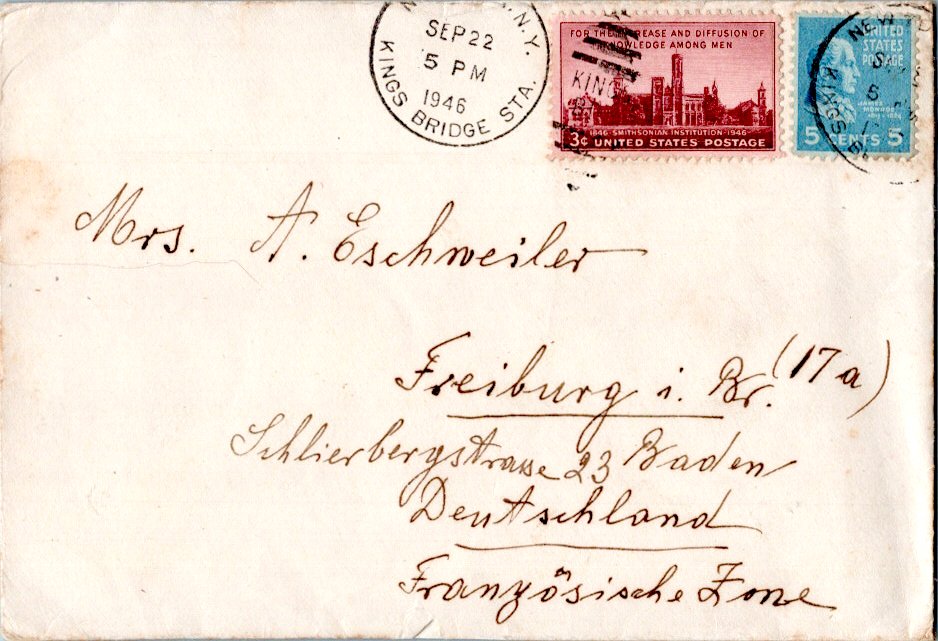 N.Y.
SEP 22
5 PM
1946
KINGS BRIDGE STA.
FOR THE INCREASE AND DIFFUSION OF
KNOWLEDGE AMONG MEN
KING
1846 · SMITHSONIAN INSTITUTION · 1946
3¢ UNITED STATES POSTAGE
UNITED
STATES
POSTAGE
JAMES
MONROE
5 CENTS 5
NEW
KINGS
Mrs. A. Eschweiler
Freiburg i. Br. (17a)
Schlierbergstrasse 23 Baden
Deutschland
Französische Zone